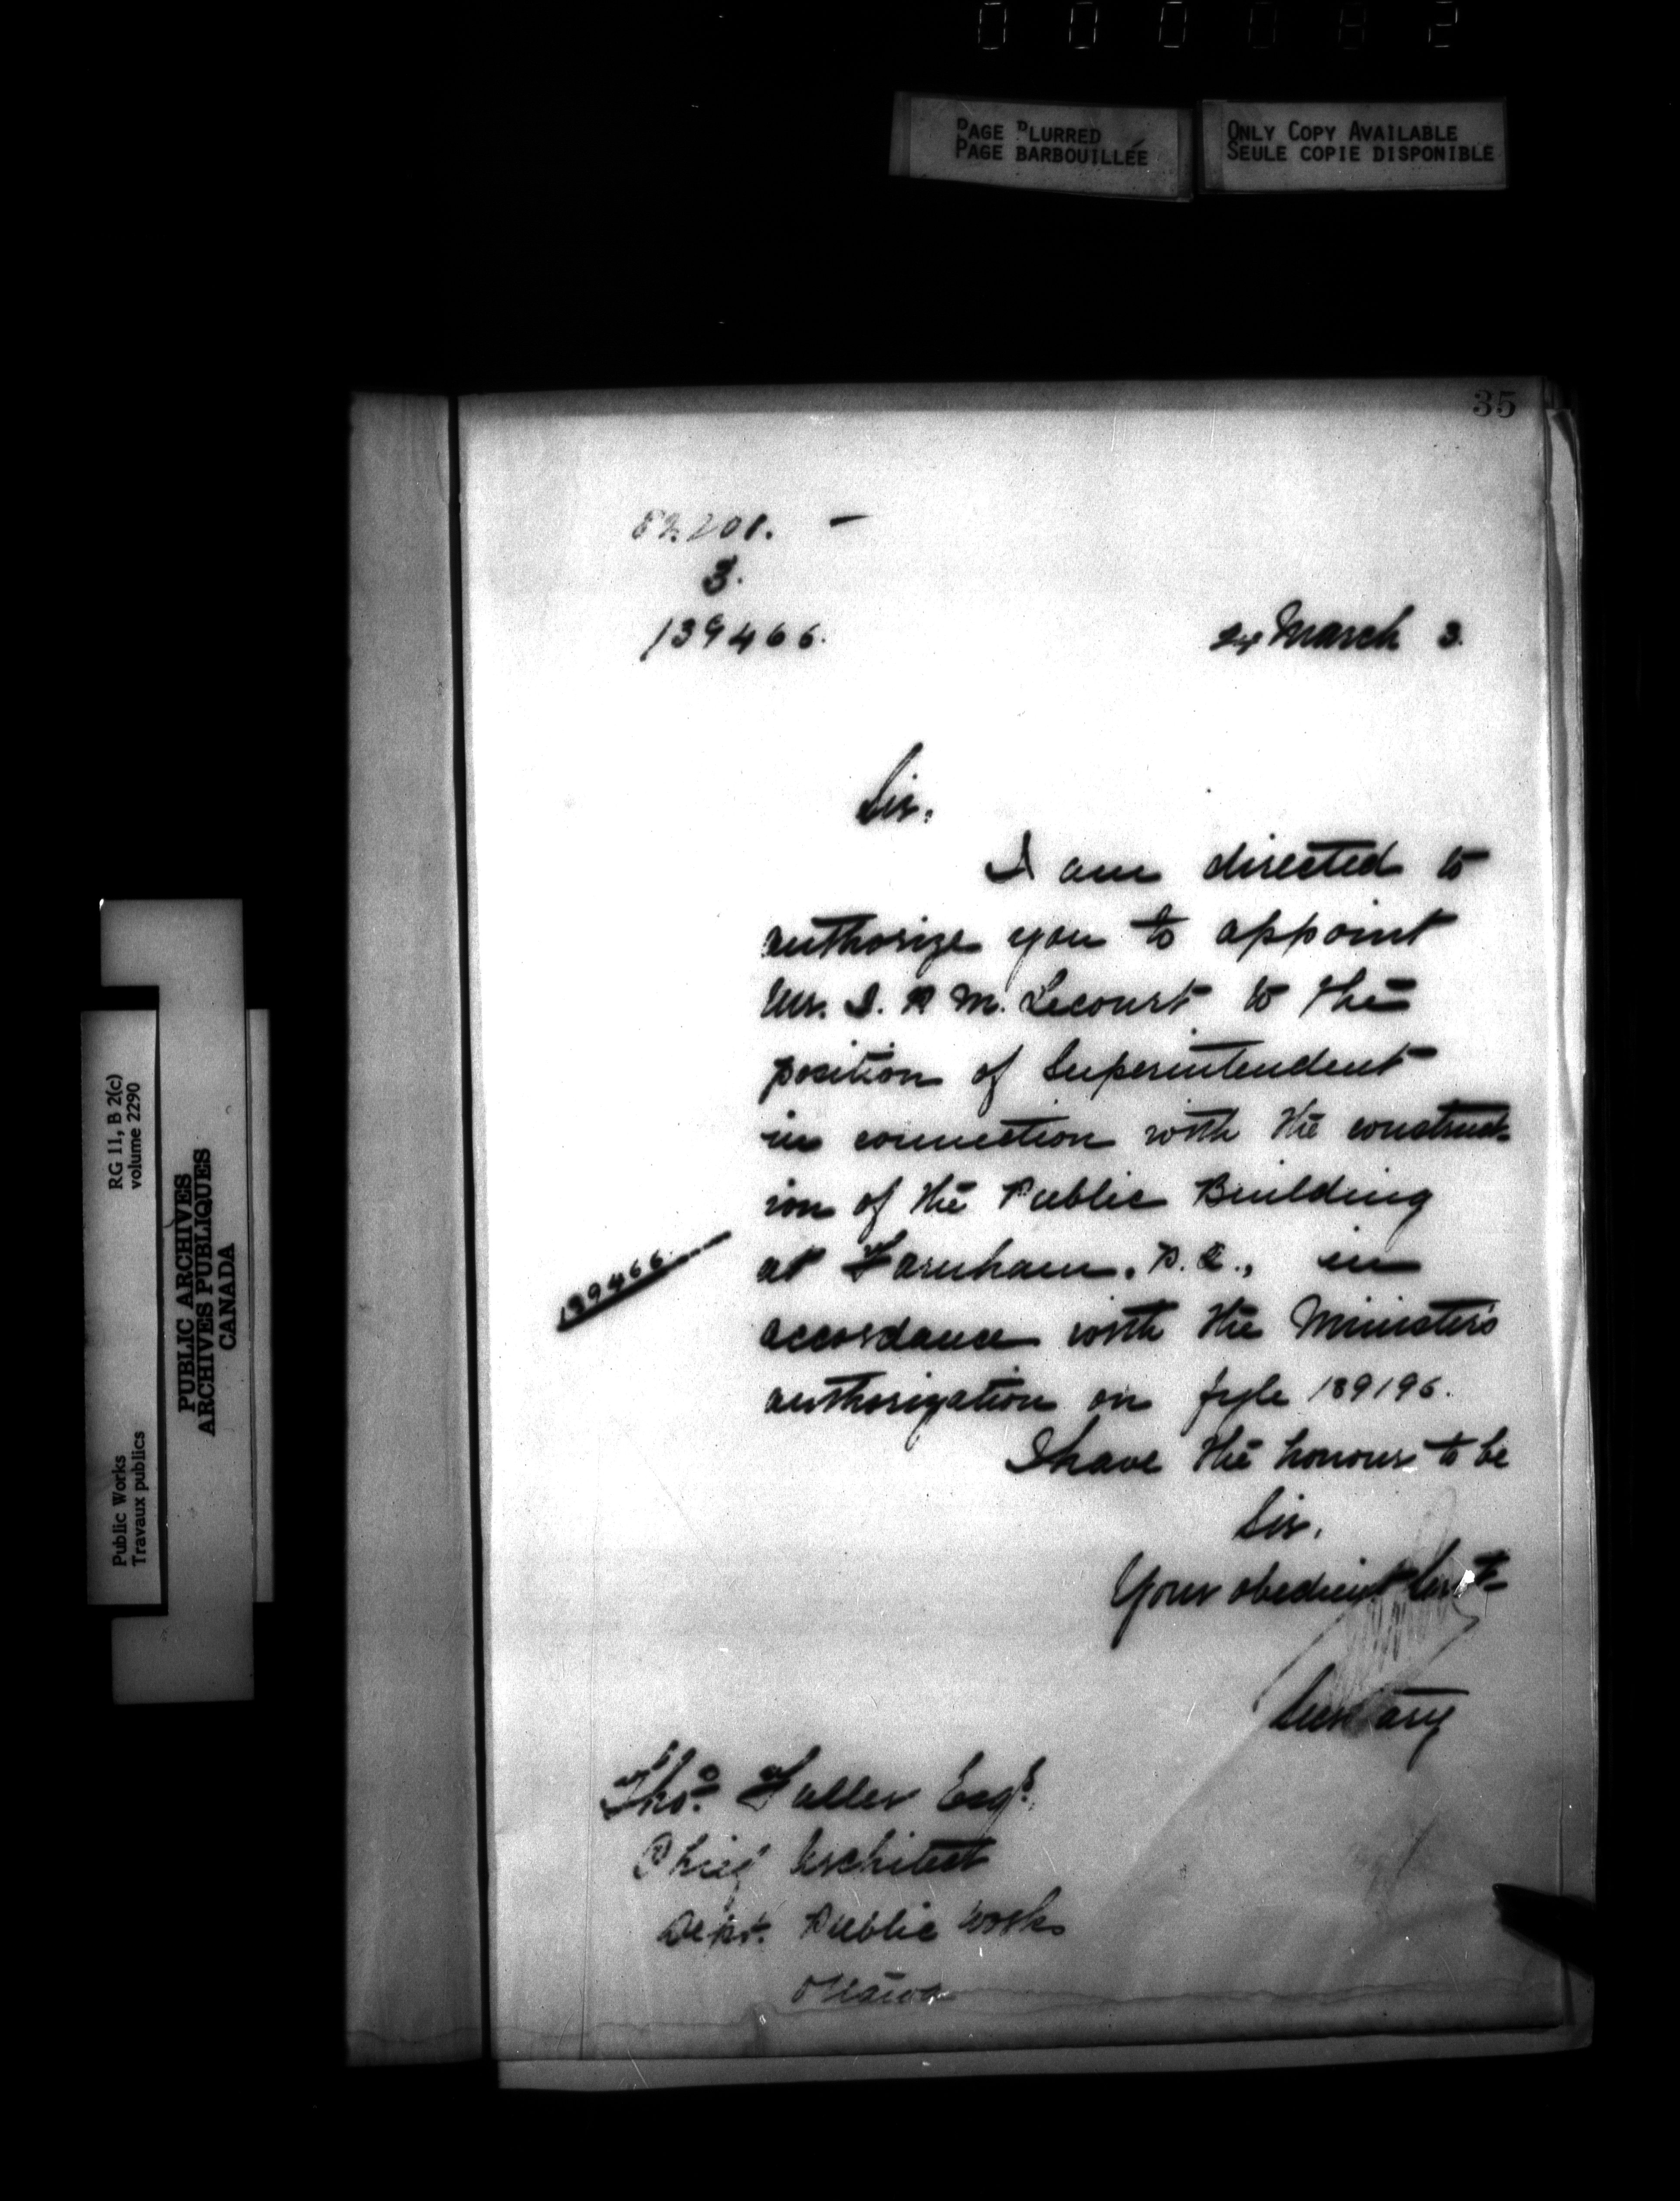 000082
PAGE BLURRED
PAGE BARBOUILLÉE
ONLY COPY AVAILABLE
SEULE COPIE DISPONIBLE
35
82201. —
3.
139466.
24 March 3.
Sir,
I am directed to
authorize you to appoint
Mr. J. R M. Lecourt to the
position of Superintendent
in connection with the construct-
ion of the Public Building
at Farnham, P.Q., in
accordance with the Minister's
authorization on fyle 139196.
139466
I have the honour to be
Sir,
Your obedient Servt
Secretary
Thos. Fuller Esqr.
Chief Architect
Dept. Public Works
Ottawa
RG 11, B 2(c)
volume 2290
Public Works
Travaux publics
PUBLIC ARCHIVES
ARCHIVES PUBLIQUES
CANADA